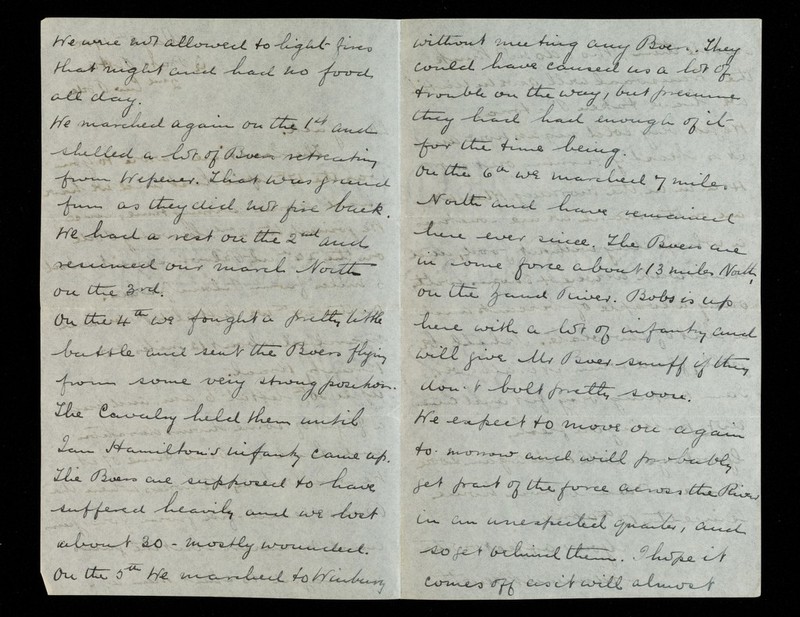 We were not allowed to light fires
that night and had no food
all day.
We marched again on the 1st and
shelled a lot of Boers retreating
from Wepener. That was grand
fun as they did not fire back.
We had a rest on the 2nd and
resumed our march North
on the 3rd.
On the 4th we fought a pretty little
battle and sent the Boers flying
from some very strong position.
The Cavalry held them until
Ian Hamilton's infantry came up.
The Boers are supposed to have
suffered heavily and we lost
about 30 - mostly wounded.
On the 5th We marched to Winburg
without meeting any Boers. They
could have caused us a lot of
trouble on the way, but presume
they had had enough of it
for the time being.
On the 6th we marched 7 miles
North and have remained
here ever since. The Boers are
in some force about 13 miles North,
on the Zand River. Bobs is up
here with a lot of infantry and
will give Mr Boer snuff if they
don't bolt pretty soon.
We expect to move on again
to-morrow and will probably
get part of the force across the River
in an unexpected quarter, and
so get behind them. I hope it
comes off as it will almost